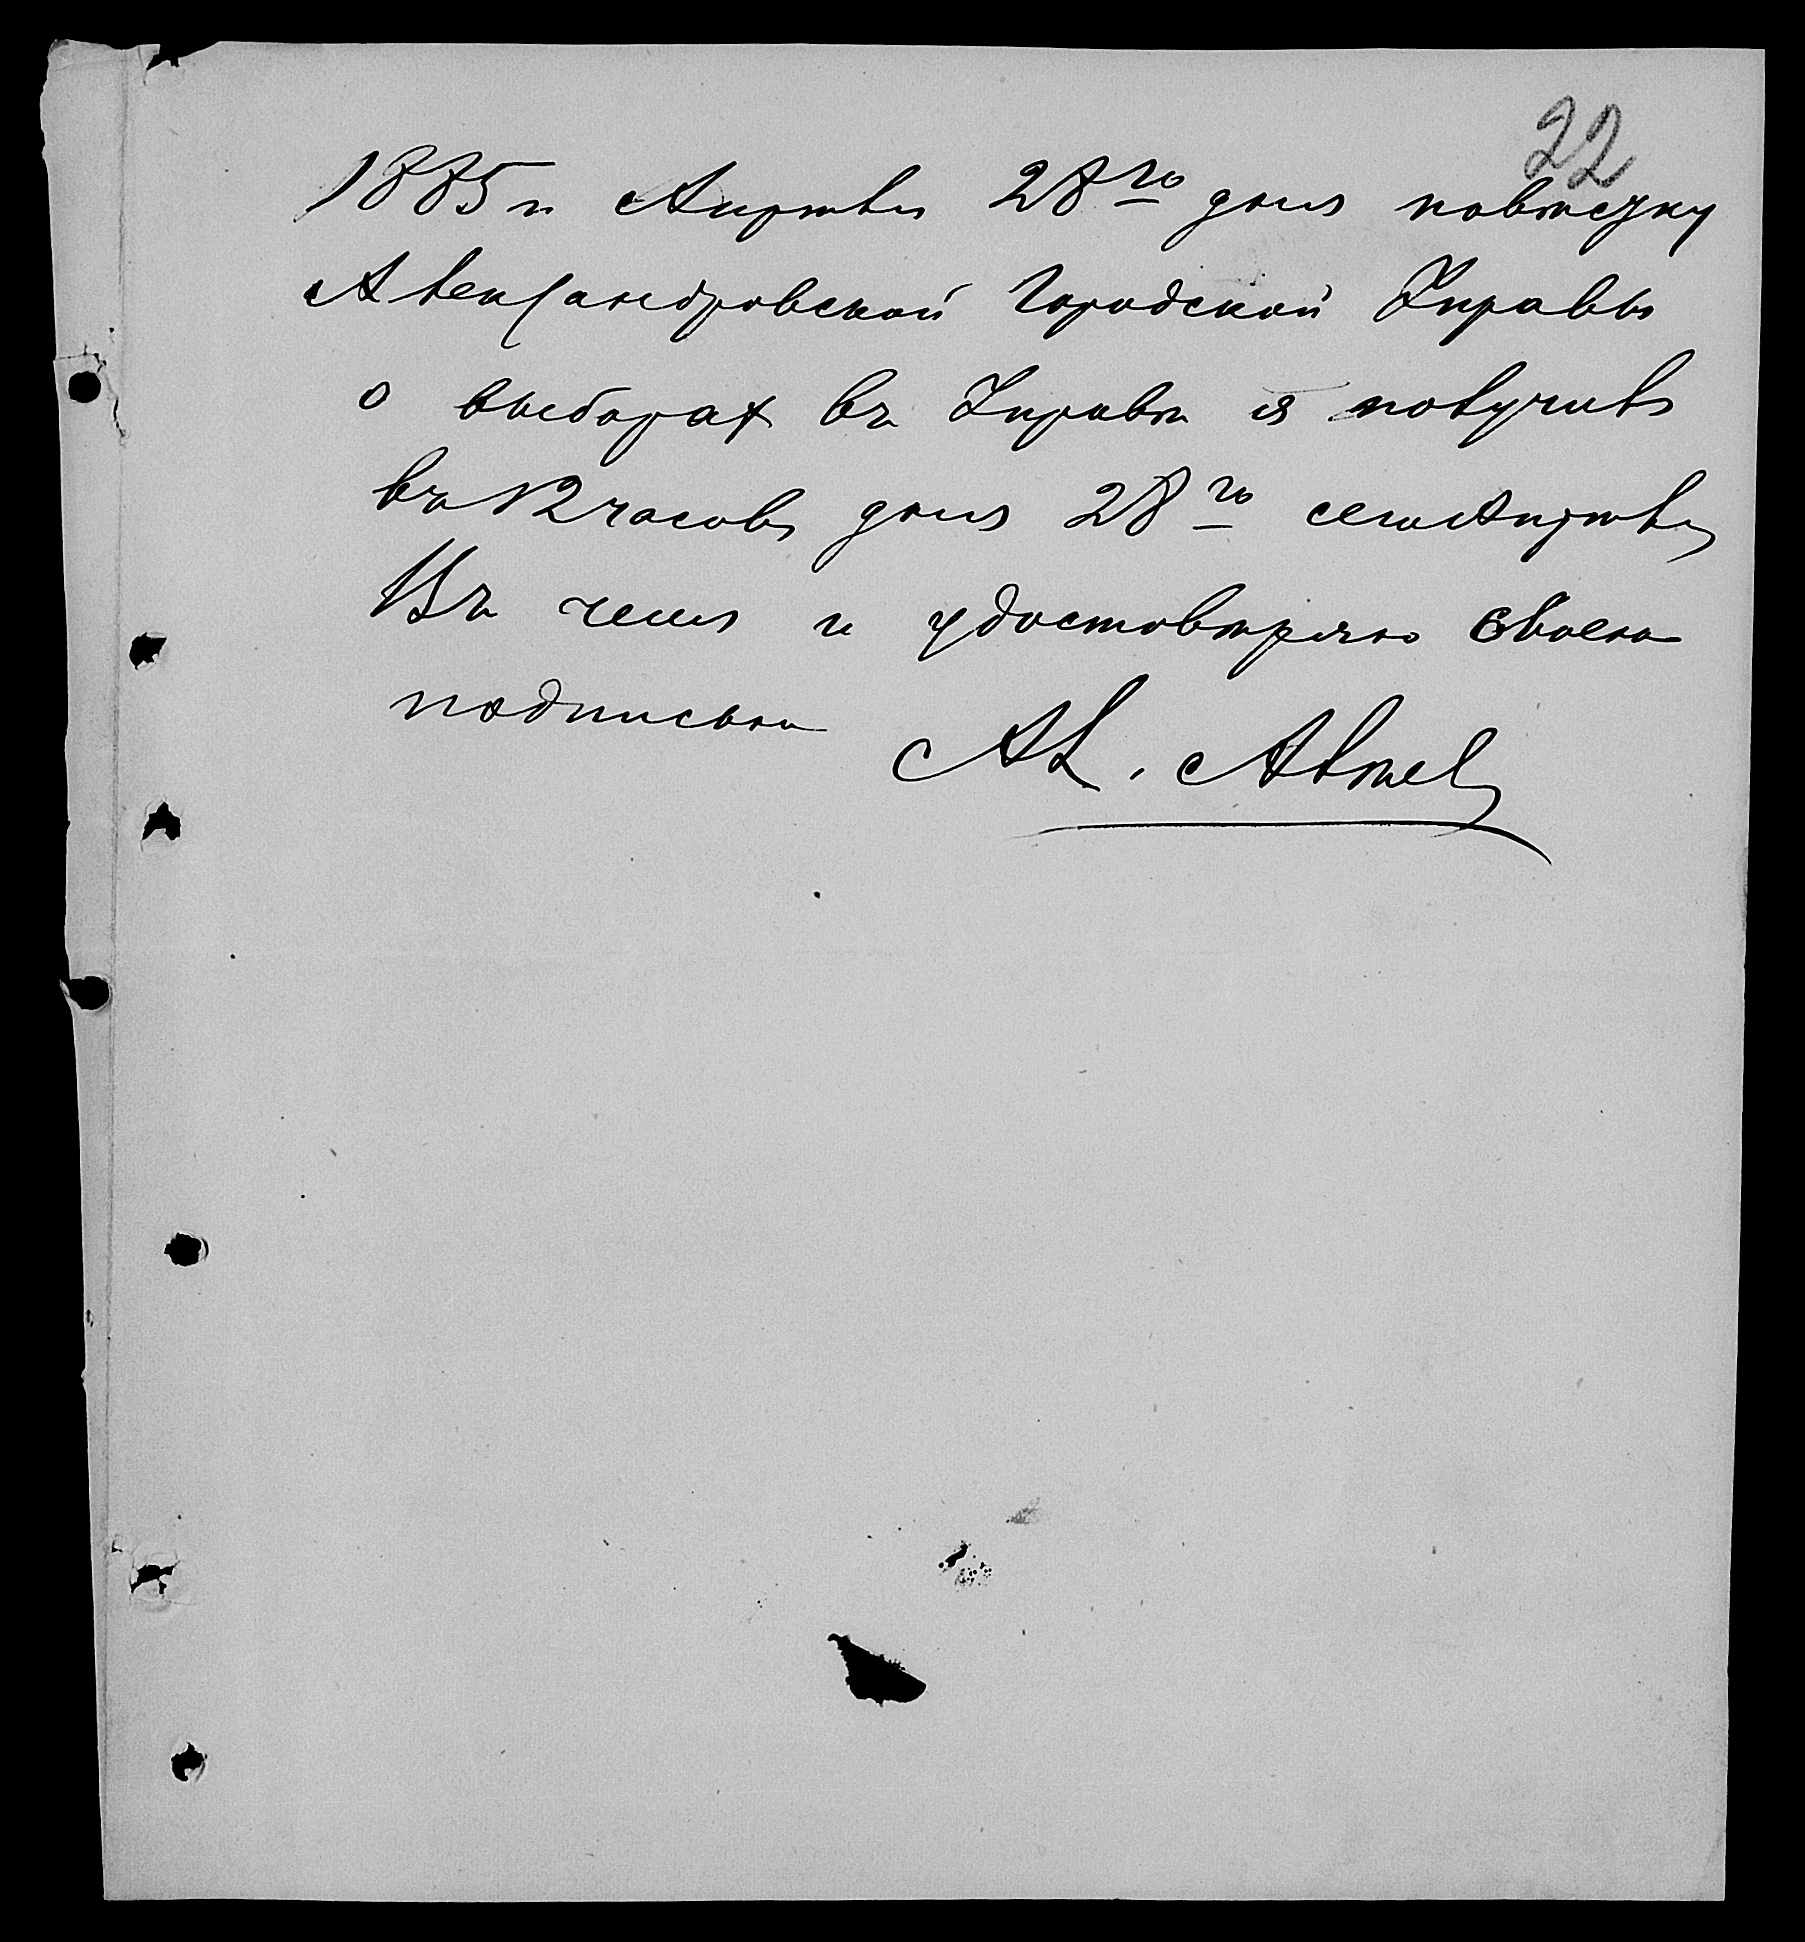 22
1885 г. Апрѣля 28го дня повѣстку
Александровской Городской Управы
о выборах въ Управѣ я получилъ
въ 12 часовъ дня 28го сего Апрѣля
Въ чемъ и удостовѣряю своею
подписью
Ал.